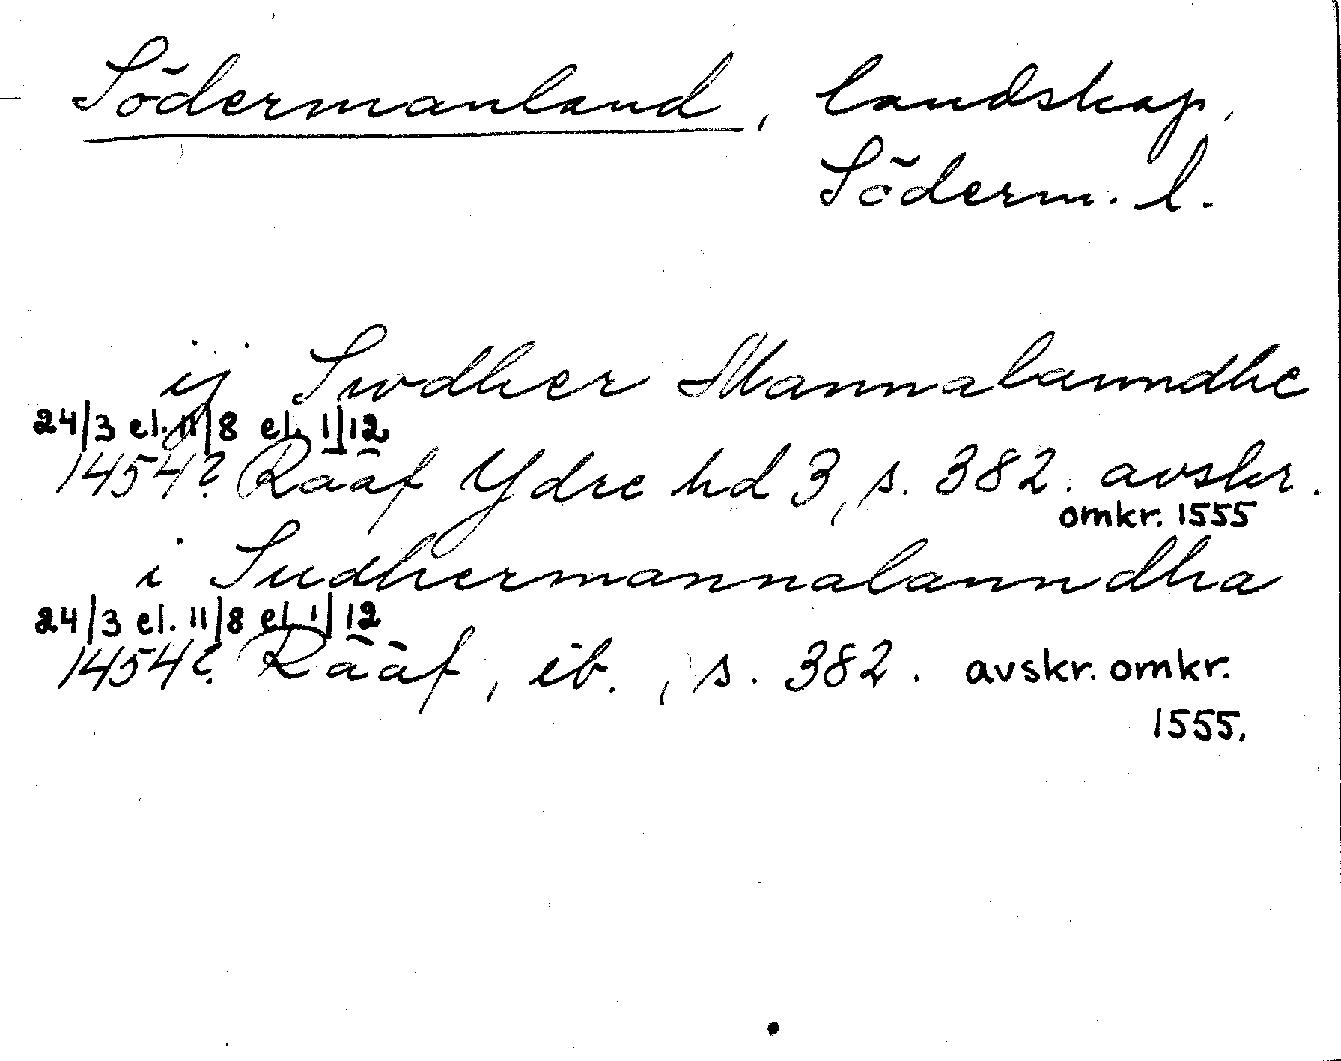 Södermanland, landskap,
Söderm. l.
ij Swdher Mannalanndhe
24/3 el. 11/8 el. 1/12
1454? Rääf Ydre hd 3, s. 382. avskr.
omkr. 1555
i Sudhermannalanndha
24/3 el. 11/8 el. 1/12
1454? Rääf, ib., s. 382. avskr. omkr.
1555.